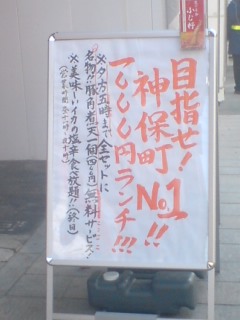 目指せ!
神保町No.1!!
1000円ランチ!!!
※夕方五時まで全セットに
名物!!豚角煮天一個(四〇〇円)無料サービス!
※美味〜いイカの塩辛食べ放題!!(終日)